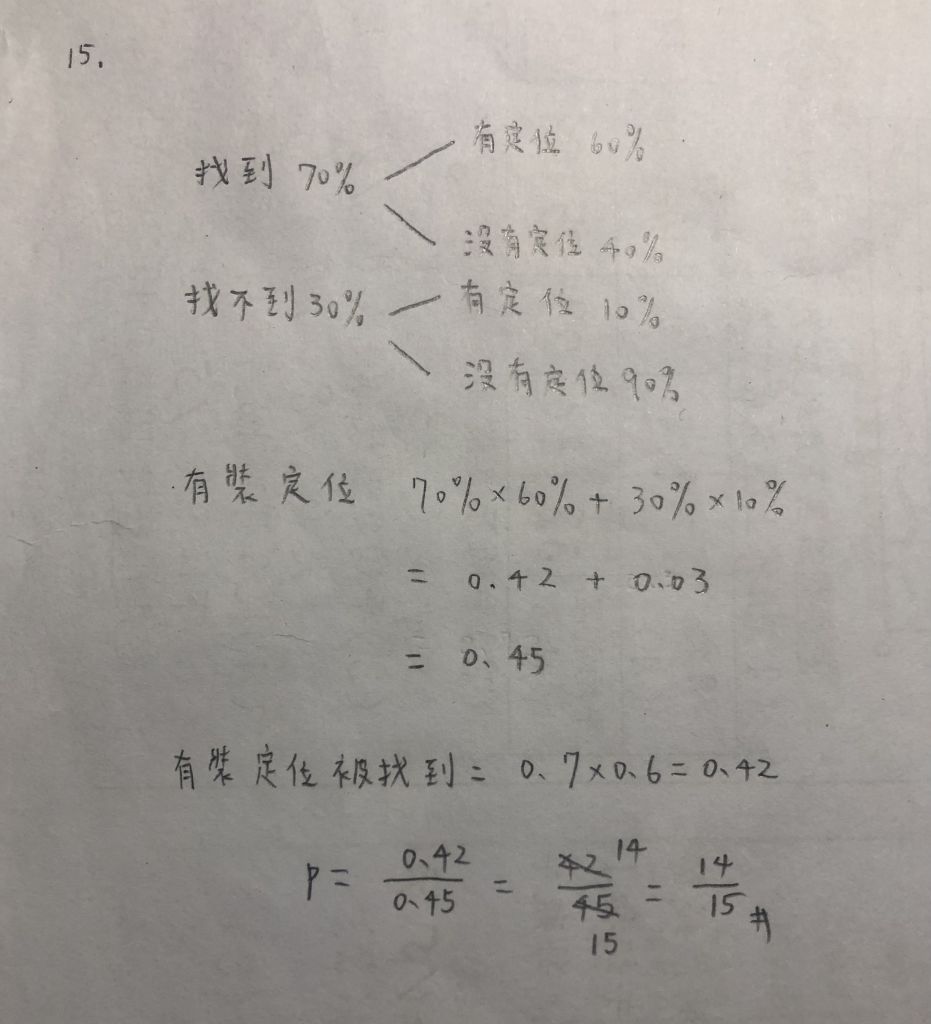 15.
有定位 60%
找到 70%
沒有定位 40%
找不到 30%
有定位 10%
沒有定位 90%
有裝定位 70%×60%+30%×10%
= 0.42 + 0.03
= 0.45
有裝定位被找到= 0.7×0.6=0.42
P= 0.42/0.45 = 42/45 14/15 = 14/15 #